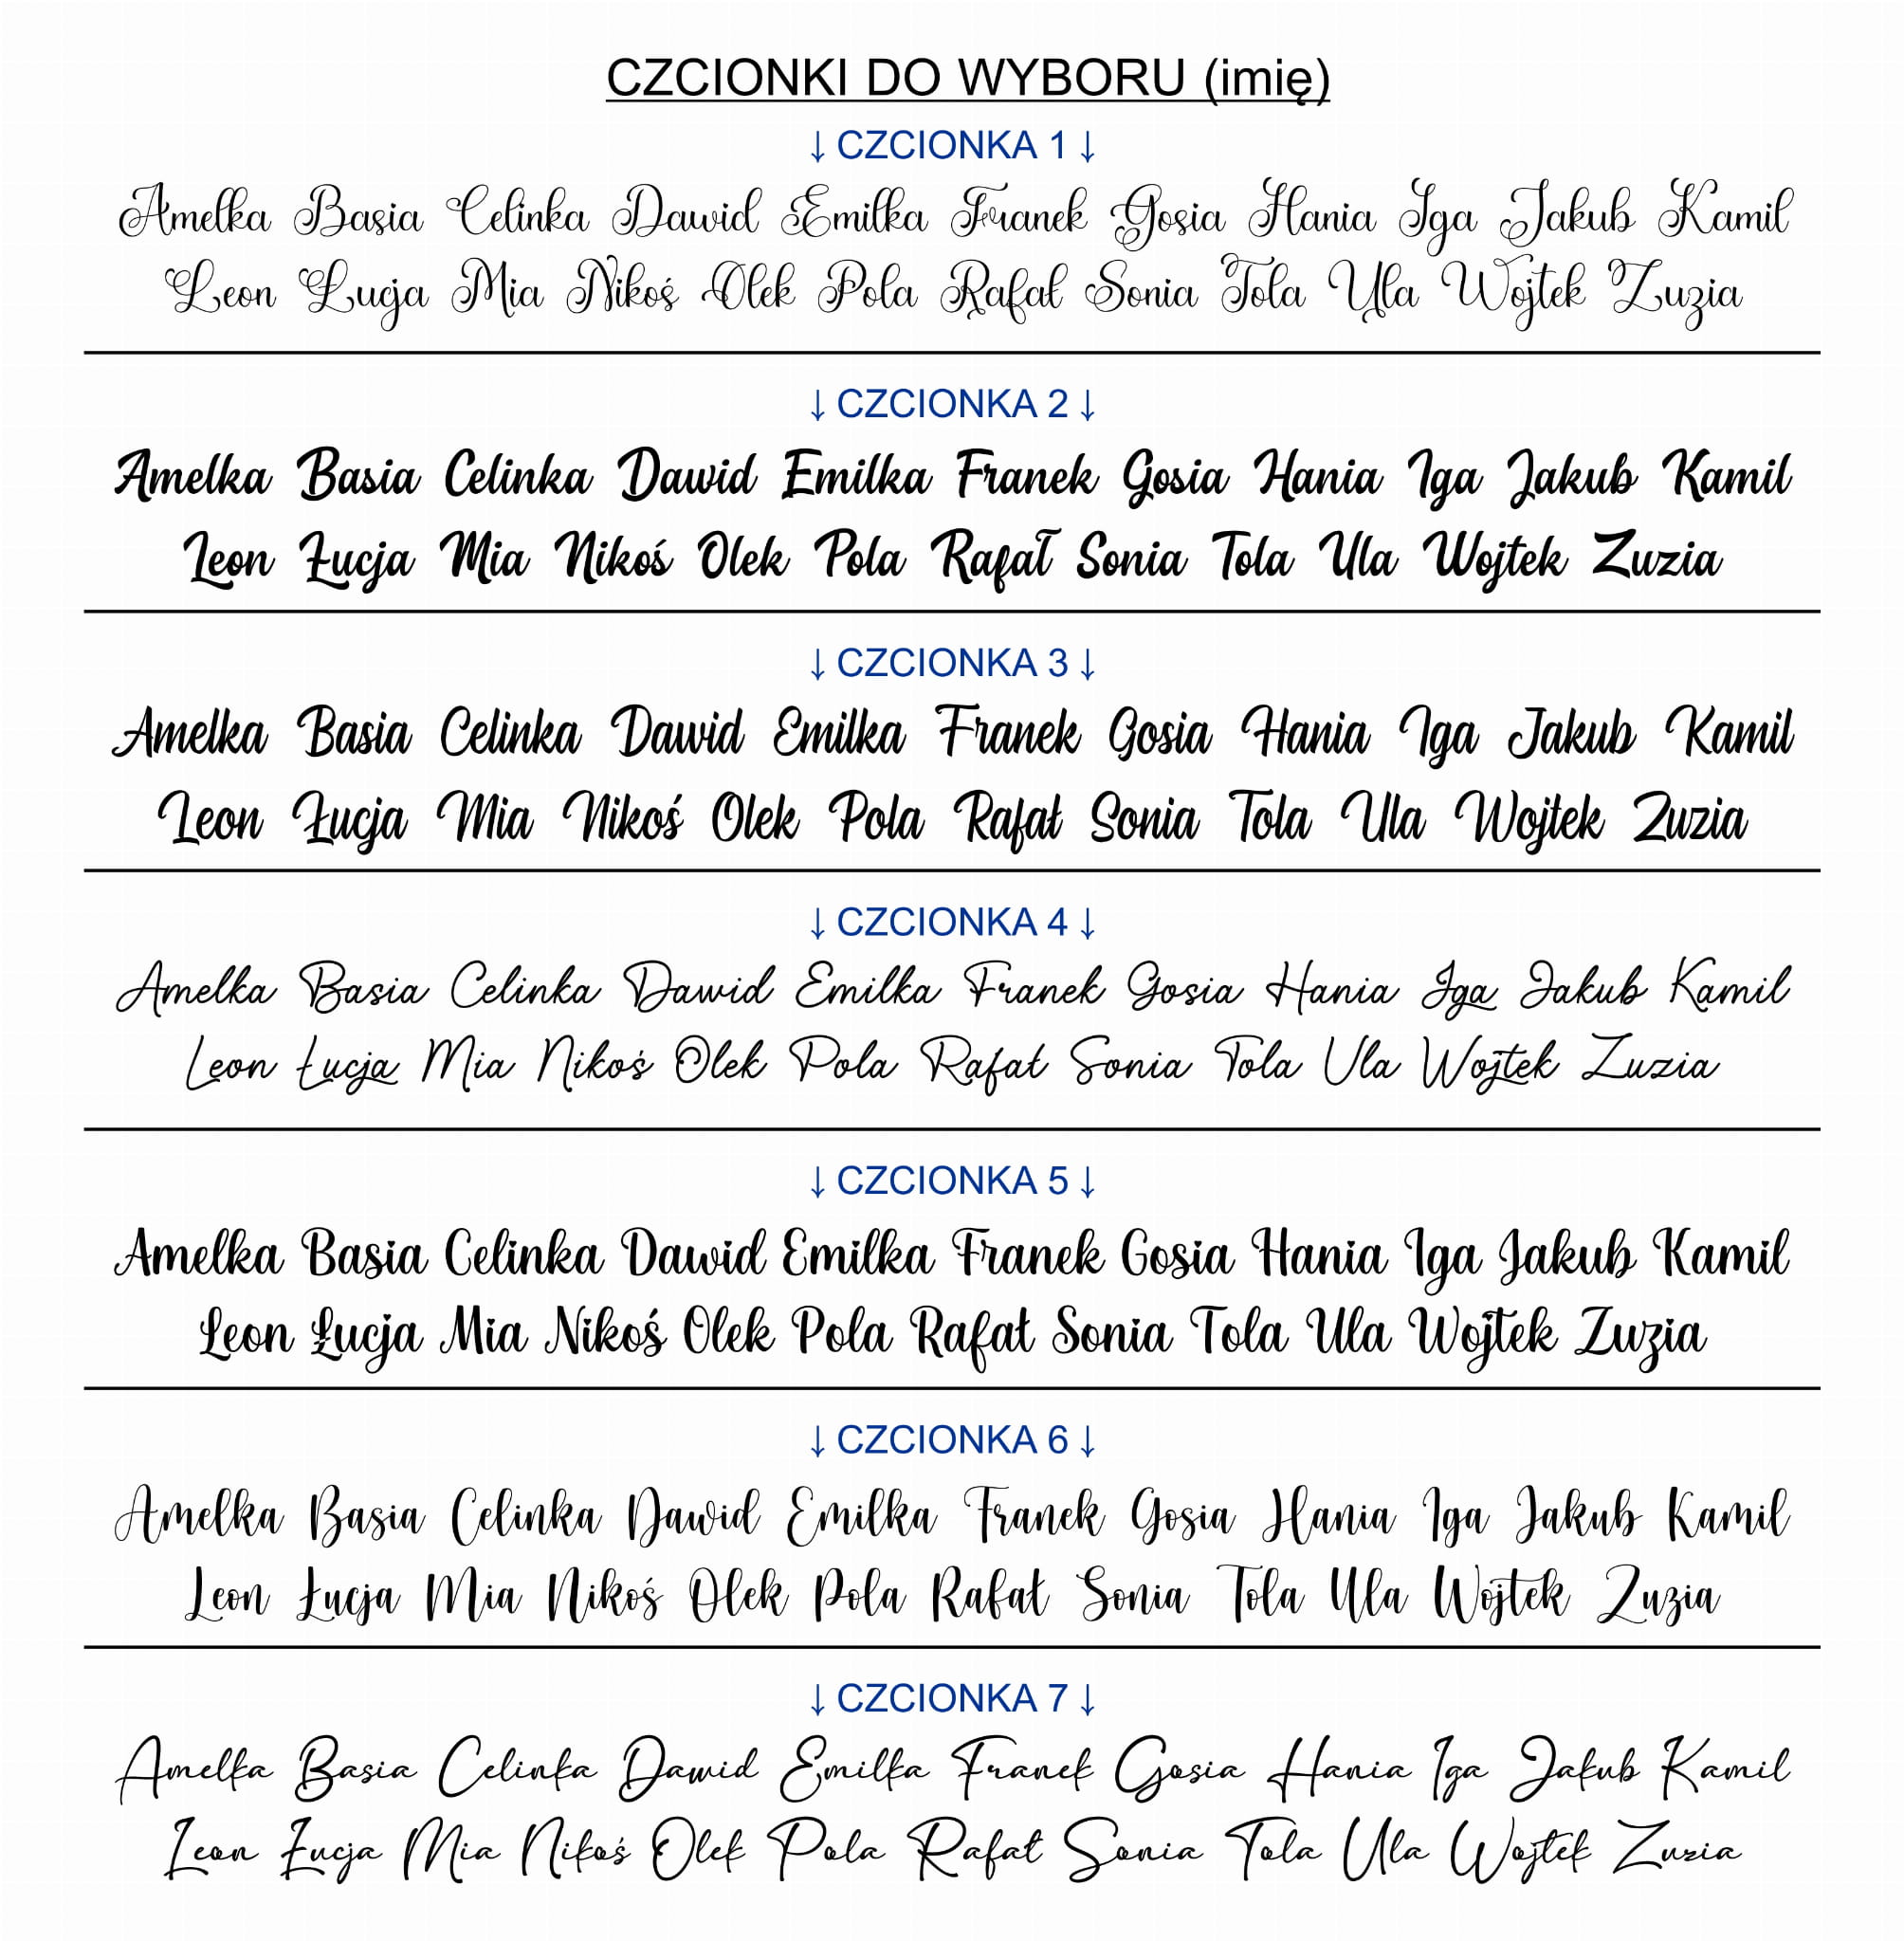 CZCIONKI DO WYBORU (imię)
↓ CZCIONKA 1 ↓
Amelka Basia Celinka Dawid Emilka Franek Gosia Hania Iga Jakub Kamil
Leon Łucja Mia Nikoś Olek Pola Rafał Sonia Tola Ula Wojtek Zuzia
↓ CZCIONKA 2 ↓
Amelka Basia Celinka Dawid Emilka Franek Gosia Hania Iga Jakub Kamil
Leon Łucja Mia Nikoś Olek Pola Rafał Sonia Tola Ula Wojtek Zuzia
↓ CZCIONKA 3 ↓
Amelka Basia Celinka Dawid Emilka Franek Gosia Hania Iga Jakub Kamil
Leon Łucja Mia Nikoś Olek Pola Rafał Sonia Tola Ula Wojtek Zuzia
↓ CZCIONKA 4 ↓
Amelka Basia Celinka Dawid Emilka Franek Gosia Hania Iga Jakub Kamil
Leon Łucja Mia Nikoś Olek Pola Rafał Sonia Tola Ula Wojtek Zuzia
↓ CZCIONKA 5 ↓
Amelka Basia Celinka Dawid Emilka Franek Gosia Hania Iga Jakub Kamil
Leon Łucja Mia Nikoś Olek Pola Rafał Sonia Tola Ula Wojtek Zuzia
↓ CZCIONKA 6 ↓
Amelka Basia Celinka Dawid Emilka Franek Gosia Hania Iga Jakub Kamil
Leon Łucja Mia Nikoś Olek Pola Rafał Sonia Tola Ula Wojtek Zuzia
↓ CZCIONKA 7 ↓
Amelka Basia Celinka Dawid Emilka Franek Gosia Hania Iga Jakub Kamil
Leon Łucja Mia Nikoś Olek Pola Rafał Sonia Tola Ula Wojtek Zuzia